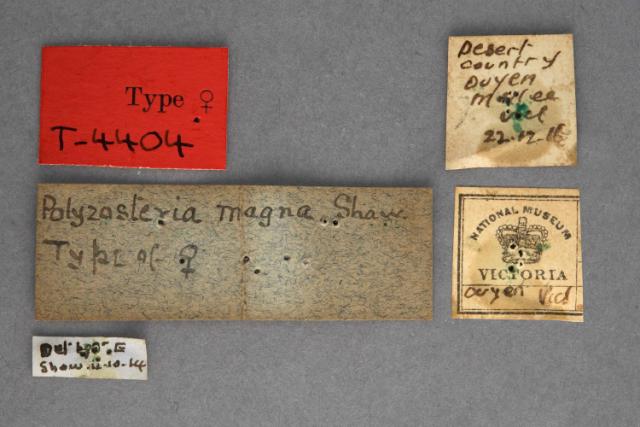 Type ♀
T-4404
Desert
country
Ouyen
Mallee
Vict
22.12.
Polyzosteria magna. Shaw
Type of ♀
NATIONAL MUSEUM
VICTORIA
Ouyen Vict
Det by E
Shaw